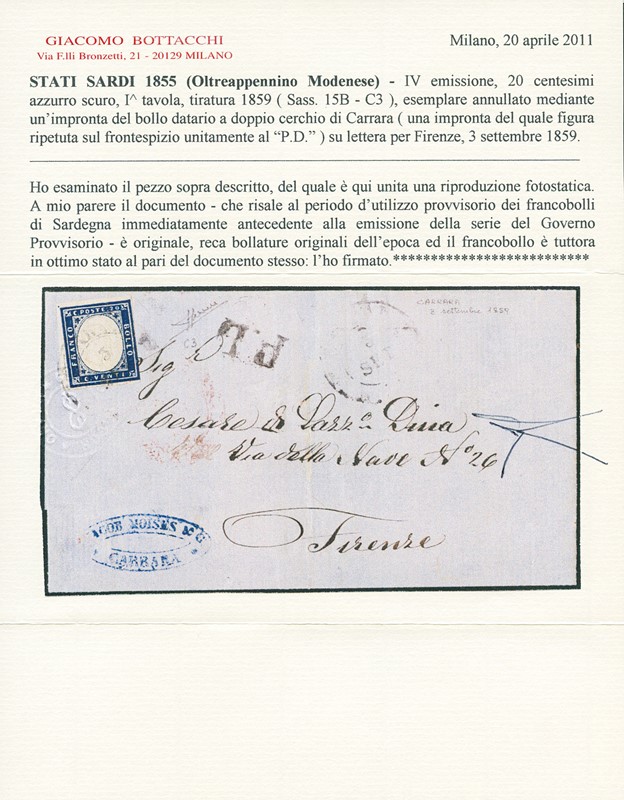 GIACOMO BOTTACCHI
Via F.lli Bronzetti, 21 - 20129 MILANO
Milano, 20 aprile 2011
STATI SARDI 1855 (Oltreappennino Modenese) - IV emissione, 20 centesimi
azzurro scuro, I^ tavola, tiratura 1859 ( Sass. 15B - C3 ), esemplare annullato mediante
un'impronta del bollo datario a doppio cerchio di Carrara ( una impronta del quale figura
ripetuta sul frontespizio unitamente al “P.D.” ) su lettera per Firenze, 3 settembre 1859.
Ho esaminato il pezzo sopra descritto, del quale è qui unita una riproduzione fotostatica.
A mio parere il documento - che risale al periodo d'utilizzo provvisorio dei francobolli
di Sardegna immediatamente antecedente alla emissione della serie del Governo
Provvisorio - è originale, reca bollature originali dell'epoca ed il francobollo è tuttora
in ottimo stato al pari del documento stesso: l'ho firmato.**************************
CARRARA
settembre 1859
C POSTE 20
FRANCO
BOLLO
C VENTI
C3
P.D.
Sig
Cesare di Lazz
Via della Nave Nº 26
Firenze
JACOB MOISES & C
CARRARA